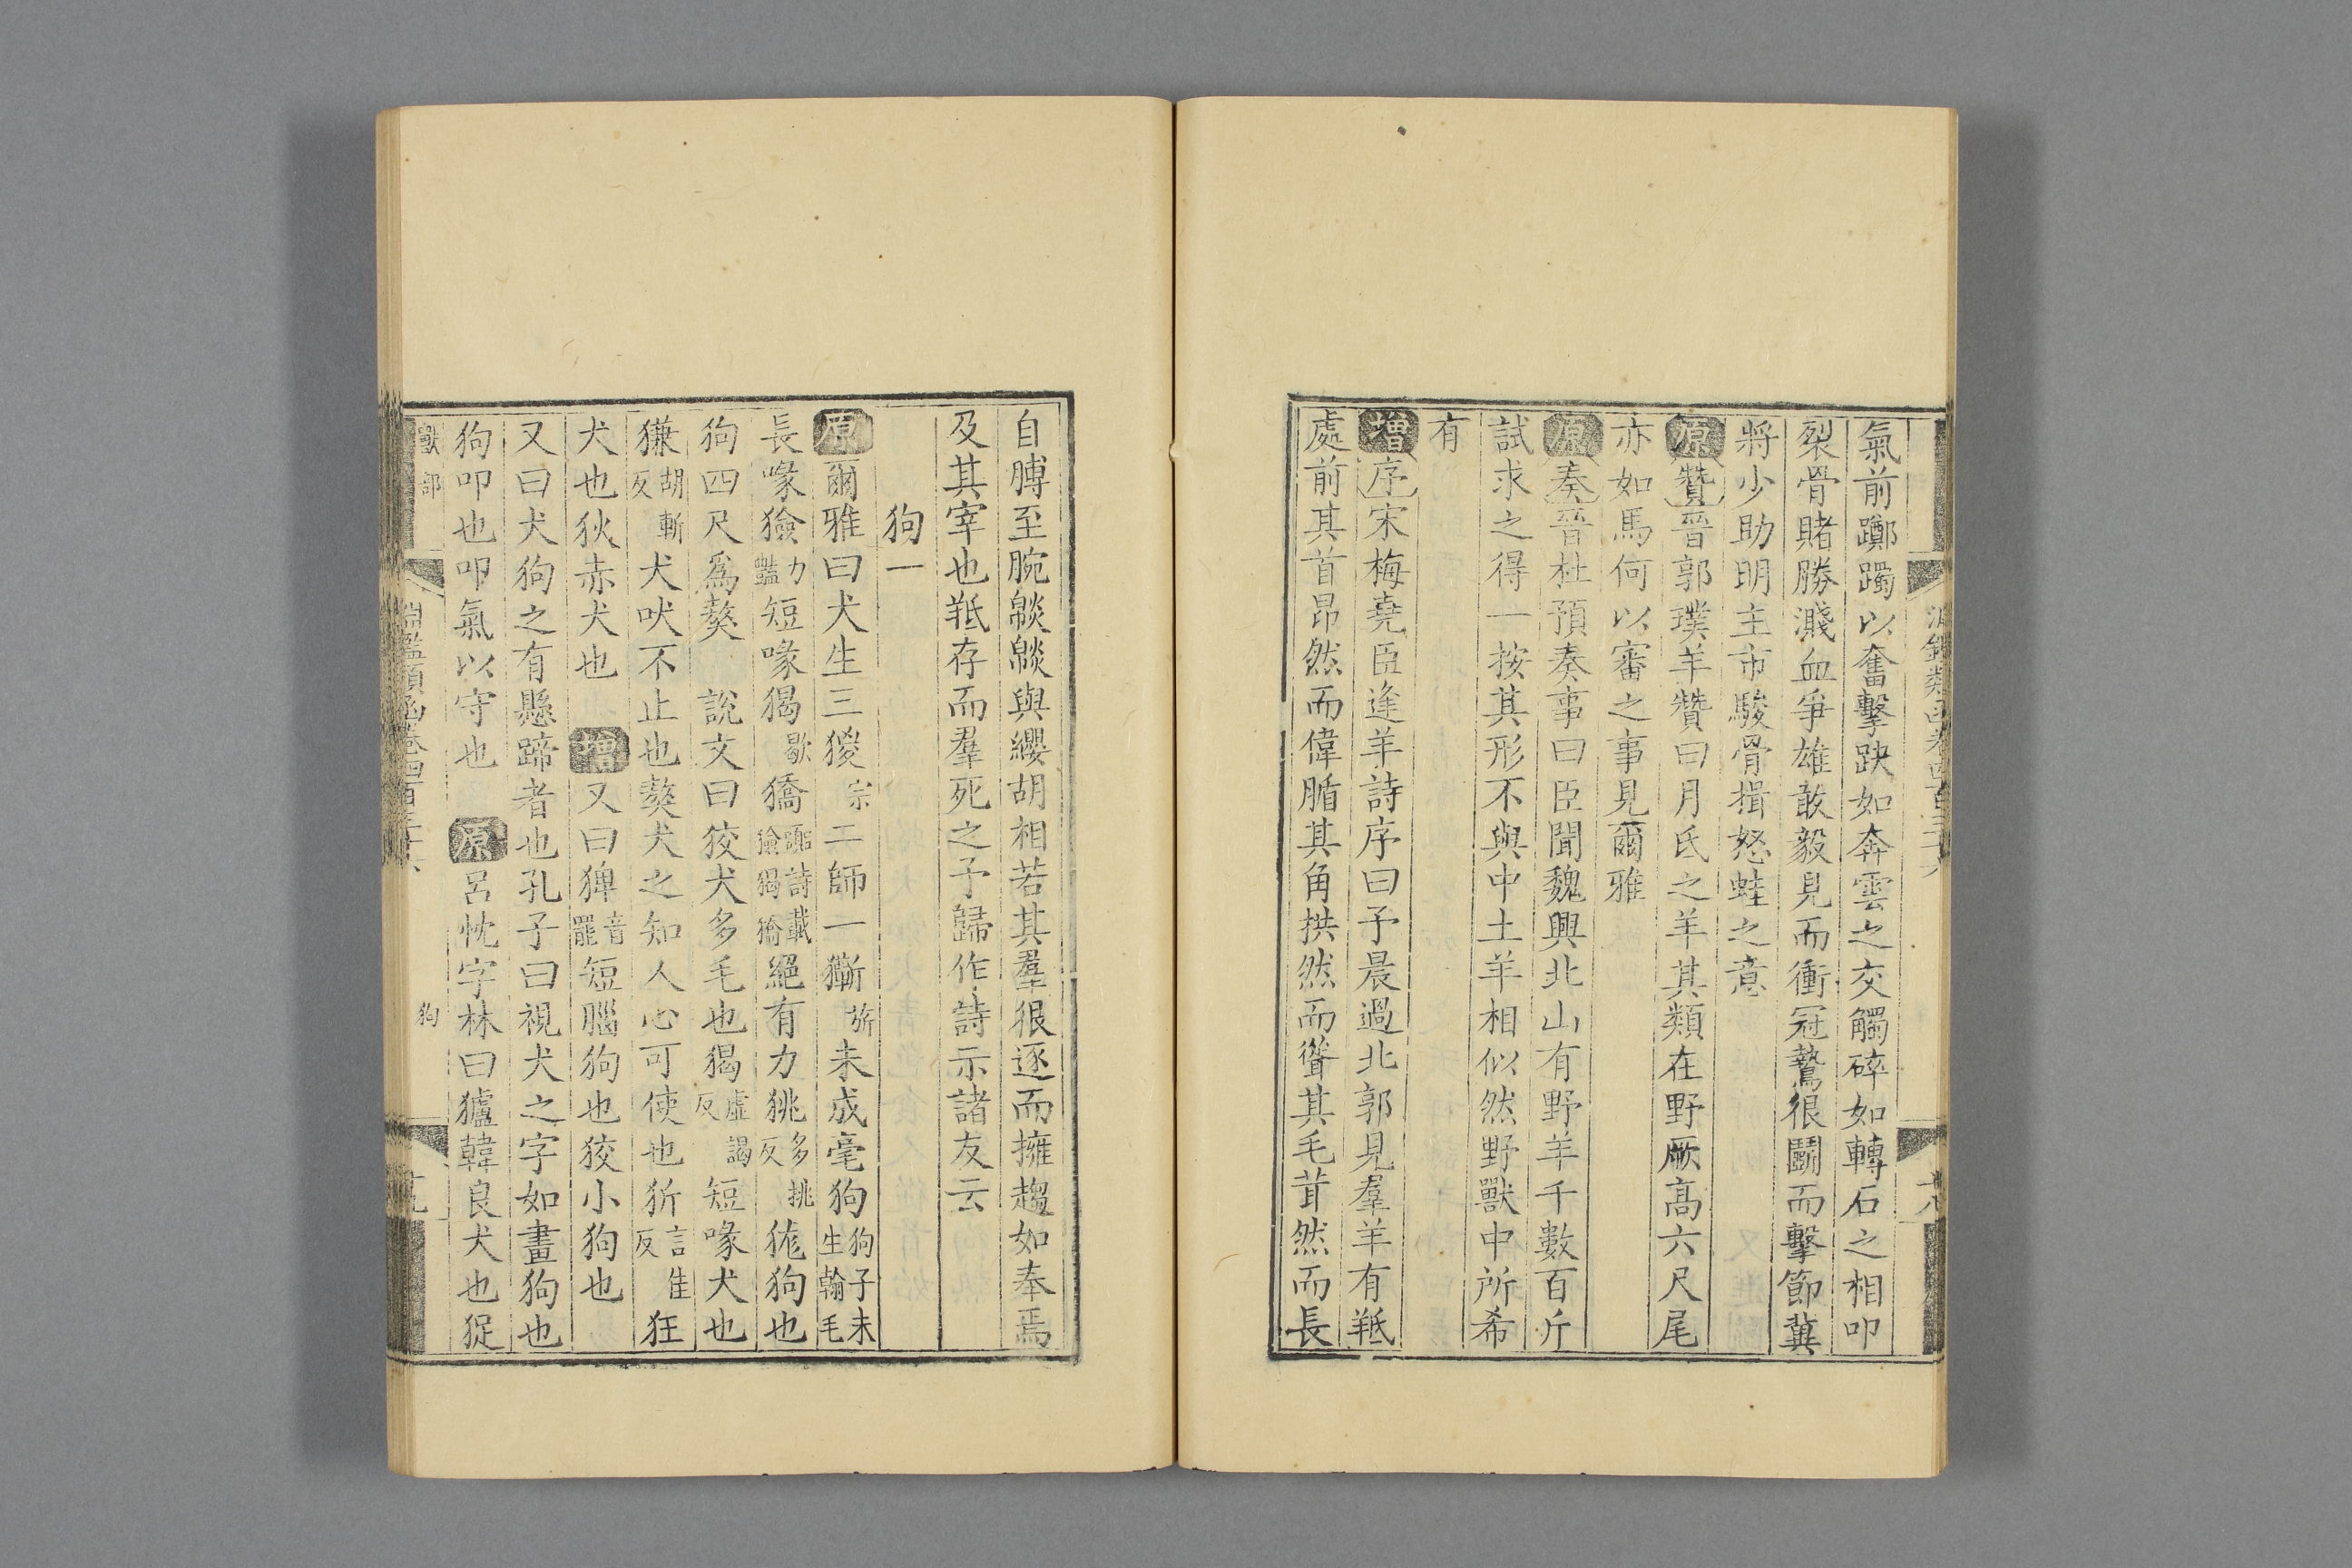 氣前躑躅以奮擊趹如奔雲之交觸碎如轉石之相叩
裂骨賭勝濺血爭雄敢毅見而衝冠鷙很鬬而擊節冀
將少助明主市駿骨揖怒蛙之意
原贊晉郭璞羊贊曰月氐之羊其類在野厥高六尺尾
亦如馬何以審之事見爾雅
原奏晉杜預奏事曰臣聞魏興北山有野羊千數百斤
試求之得一按其形不與中土羊相似然野獸中所希
有
增序宋梅堯臣逢羊詩序曰予晨過北郭見羣羊有羝
處前其首昂然而偉腯其角拱然而聳其毛茸然而長
自膊至腕毿毿與纓胡相若其羣很逐而擁趨如奉焉
及其宰也羝存而羣死之予歸作詩示諸友云
狗一
原爾雅曰犬生三猣宗二師一獑旂未成毫狗狗子未生翰毛
長喙獫力豔短喙猲歇獢詩載獫猲獢絕有力狣多挑反狵狗也
狗四尺爲獒 說文曰狡犬多毛也猲虛謁反短喙犬也
獫胡斬反犬吠不止也獒犬之知人心可使也狋言隹反狂
犬也狄赤犬也 增又曰猈音罷短腦狗也狡小狗也
又曰犬狗之有懸蹄者也孔子曰視犬之字如畫狗也
狗叩也叩氣以守也 原呂忱字林曰獹韓良犬也猑
獸部 淵鑑類函卷四百三十六 狗